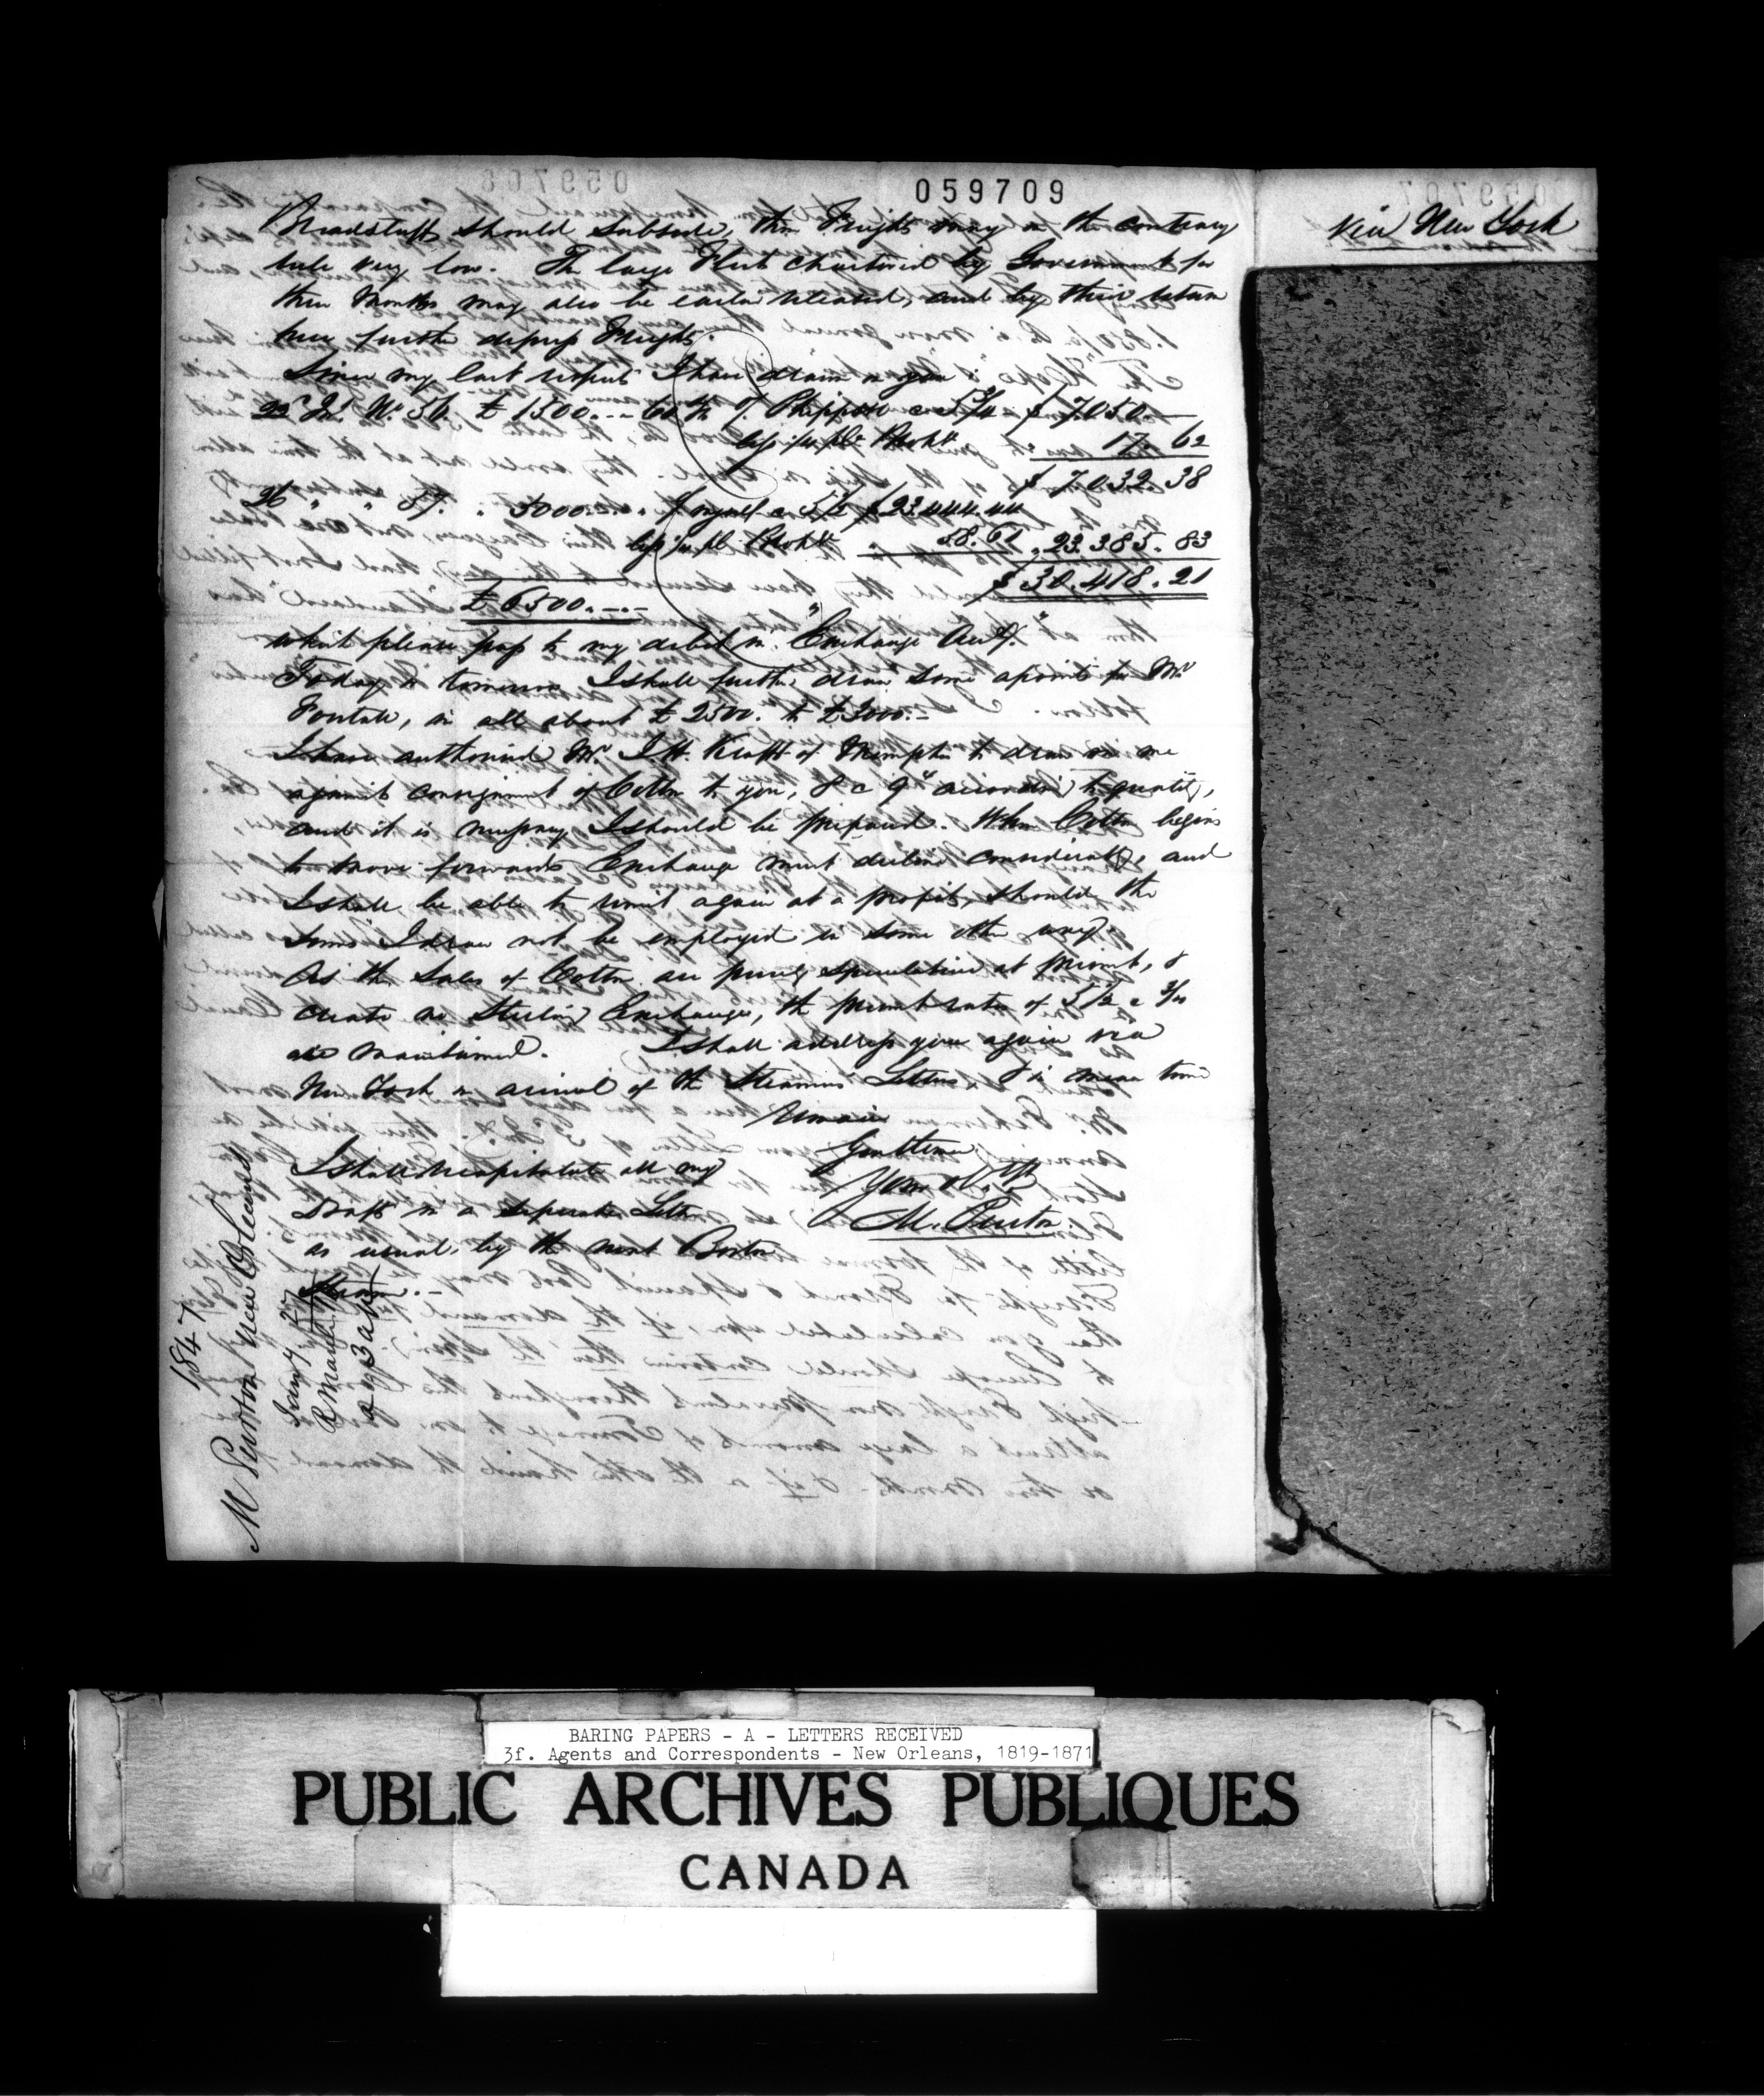 059709
via New York
Breadstuffs should subside, then Freights may on the contrary
rule very low. The large Fleet chartered by Government for
three Months may also be earlier released, and by their return
here further depress Freights.
Since my last respects I have drawn on you:
22d Jny No 56 £ 1500.-- 60 d/s f. Phipps @ 5 3/4 $ 7050.—
less 1/4 pCt Brok'ge 17. 62
$ 7032. 38
26 " " 57. " 5000.-- " f myself @ 5 1/2 $ 23.444.44
less 1/4 pCt Brok'ge 58. 61 " 23.385. 83
£ 6500.-.- $ 30.418. 21
which please pass to my debit in "Exchange Acct".
Today or tomorrow I shall further draw some apoints for Mr
in all about £ 2500. to £ 3000.-
I have authorized Mr. J.H. Krafft of Memphis to draw on me
against consignment of Cotton to you, 8 @ 9c according to quality,
and it is necessary I should be prepared. When Cotton begins
to move forwards Exchange must decline considerably, and
I shall be able to remit again at a profit, should the
sums I draw not be employed in some other way.
As the Sales of Cotton are purely speculative at present, &
create no Sterling Exchange, the present rates of 5 1/2 @ 3/4
are maintained. I shall address you again via
New York on arrival of the Steamers Letters, & in mean time
remain
Gentlemen
Your
M. Peurton
I shall recapitulate all my
Drafts in a separate Letter
as usual, by the next Boston
Steamer.-
1847
M Peurton New Orleans
Jany. 27
R March
a 3 ap
BARING PAPERS - A - LETTERS RECEIVED
3f. Agents and Correspondents - New Orleans, 1819-1871
PUBLIC ARCHIVES PUBLIQUES
CANADA